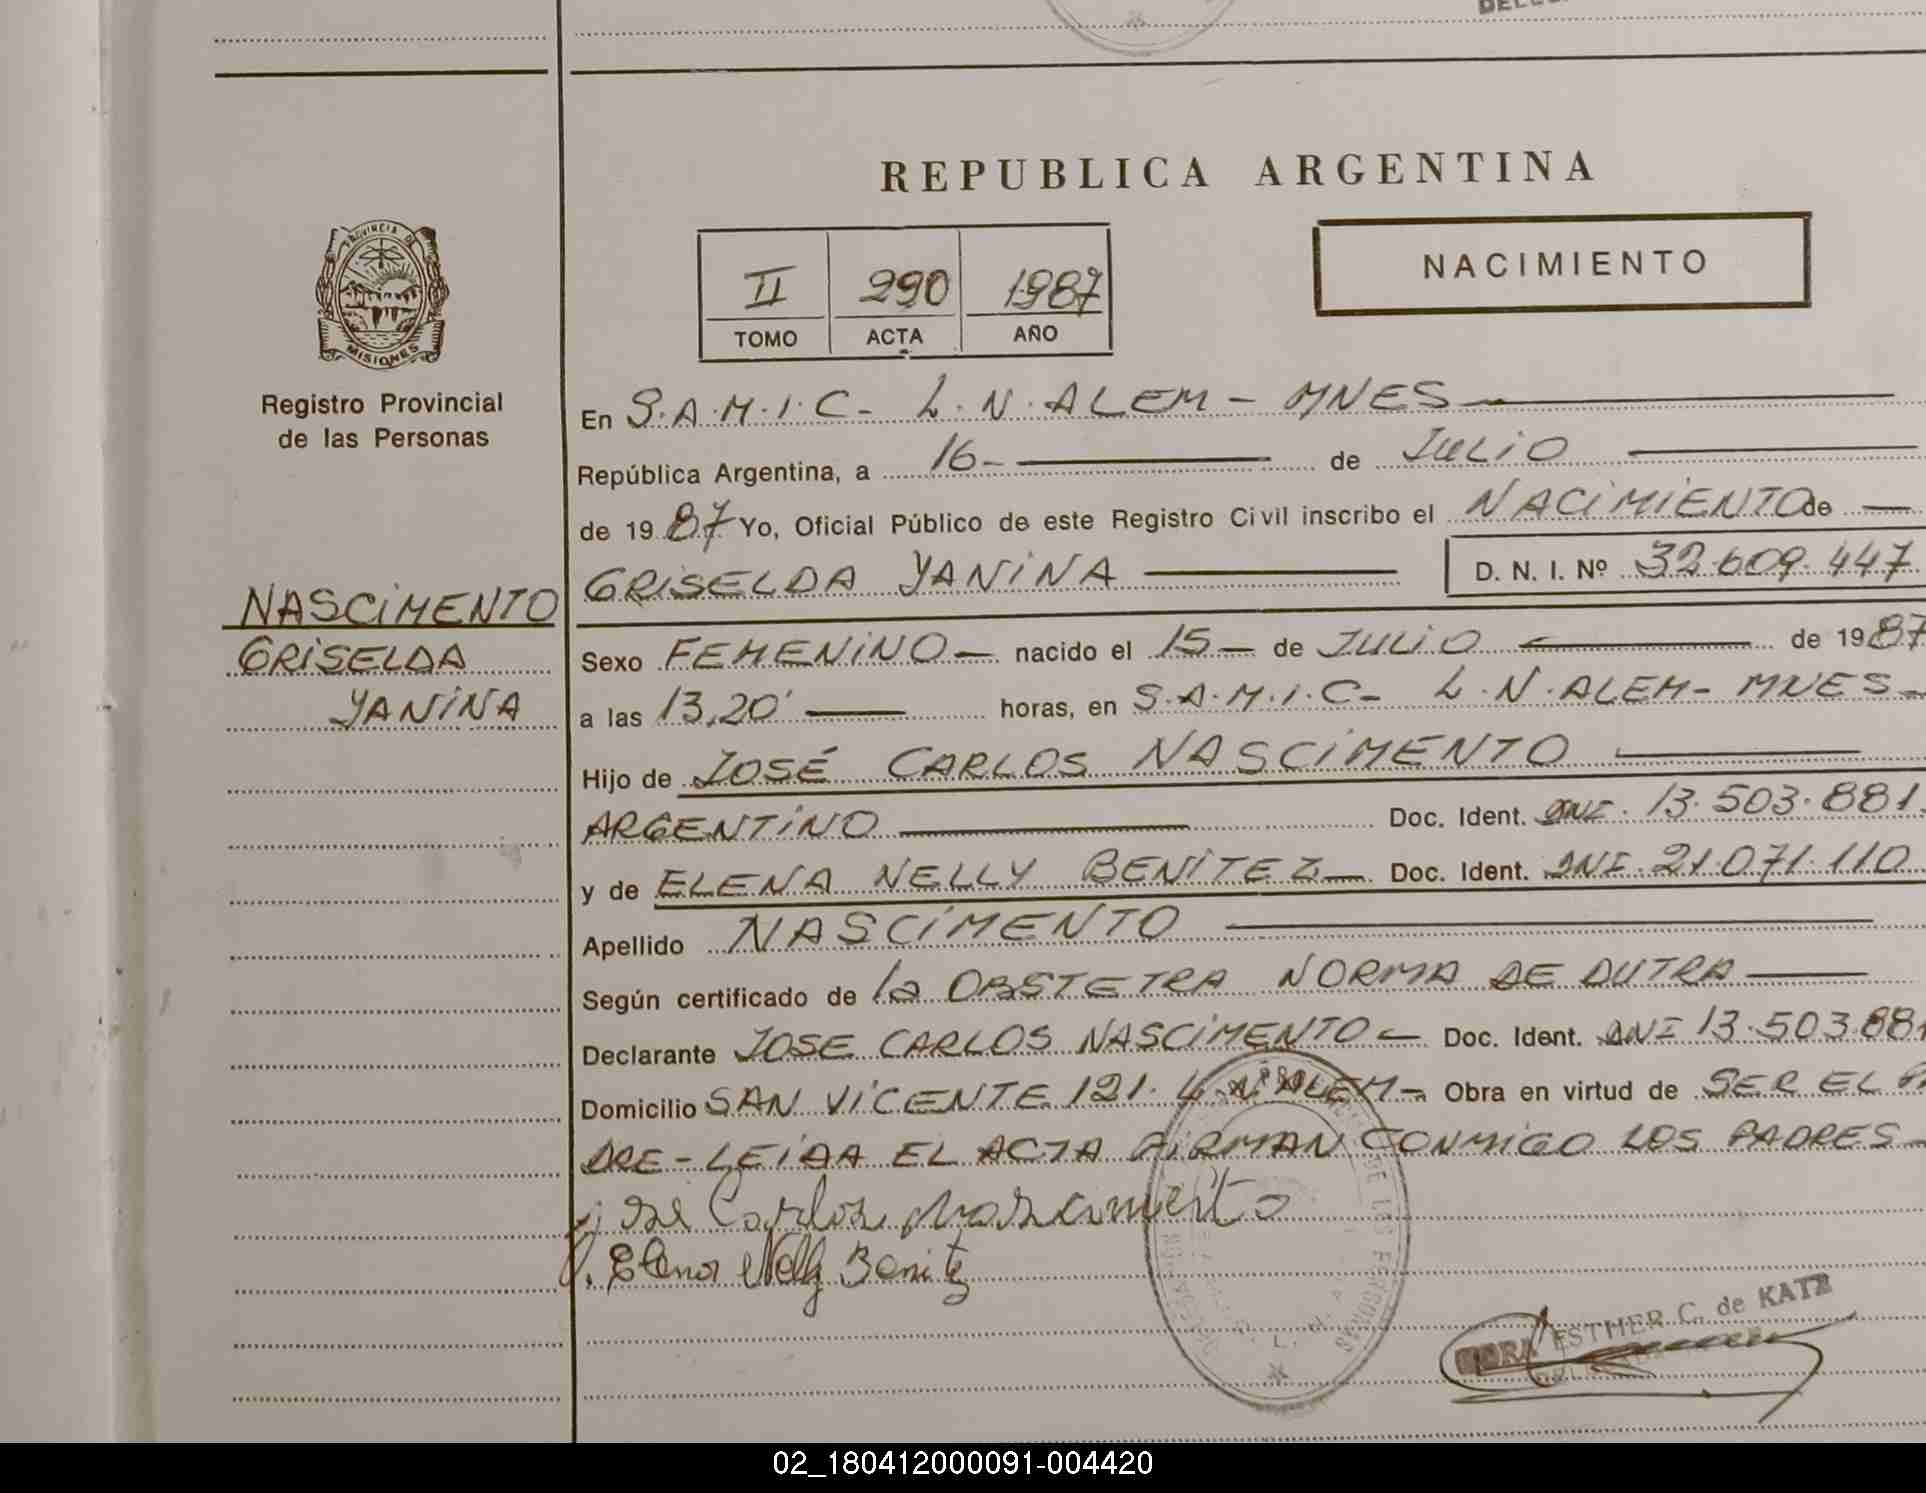 REPUBLICA ARGENTINA
PROVINCIA DE
MISIONES
Registro Provincial
de las Personas
II 290 1987
TOMO ACTA AÑO
NACIMIENTO
En S.A.M.I.C- L.N.ALEM- MNES
República Argentina, a 16- de JULIO
de 1987 Yo, Oficial Público de este Registro Civil inscribo el NACIMIENTO de
GRISELDA YANINA D. N. I. Nº 32.609.447
NASCIMENTO
GRISELDA
YANINA
Sexo FEMENINO- nacido el 15- de JULIO de 1987
a las 13,20' horas, en S.A.M.I.C- L.N.ALEM- MNES-
Hijo de JOSÉ CARLOS NASCIMENTO
ARGENTINO Doc. Ident. DNI. 13.503.881
y de ELENA NELLY BENITEZ- Doc. Ident. DNI. 21.071.110
Apellido NASCIMENTO
Según certificado de la OBSTETRA NORMA DE DUTRA
Declarante JOSE CARLOS NASCIMENTO- Doc. Ident. DNI 13.503.881
Domicilio SAN VICENTE 121. L.N.ALEM- Obra en virtud de SER EL PA
DRE-LEIDA EL ACTA FIRMAN CONMIGO LOS PADRES-
José Carlos Nascimento
Elena Nelly Benitez
ESTHER C. de KATZ
02_180412000091-004420